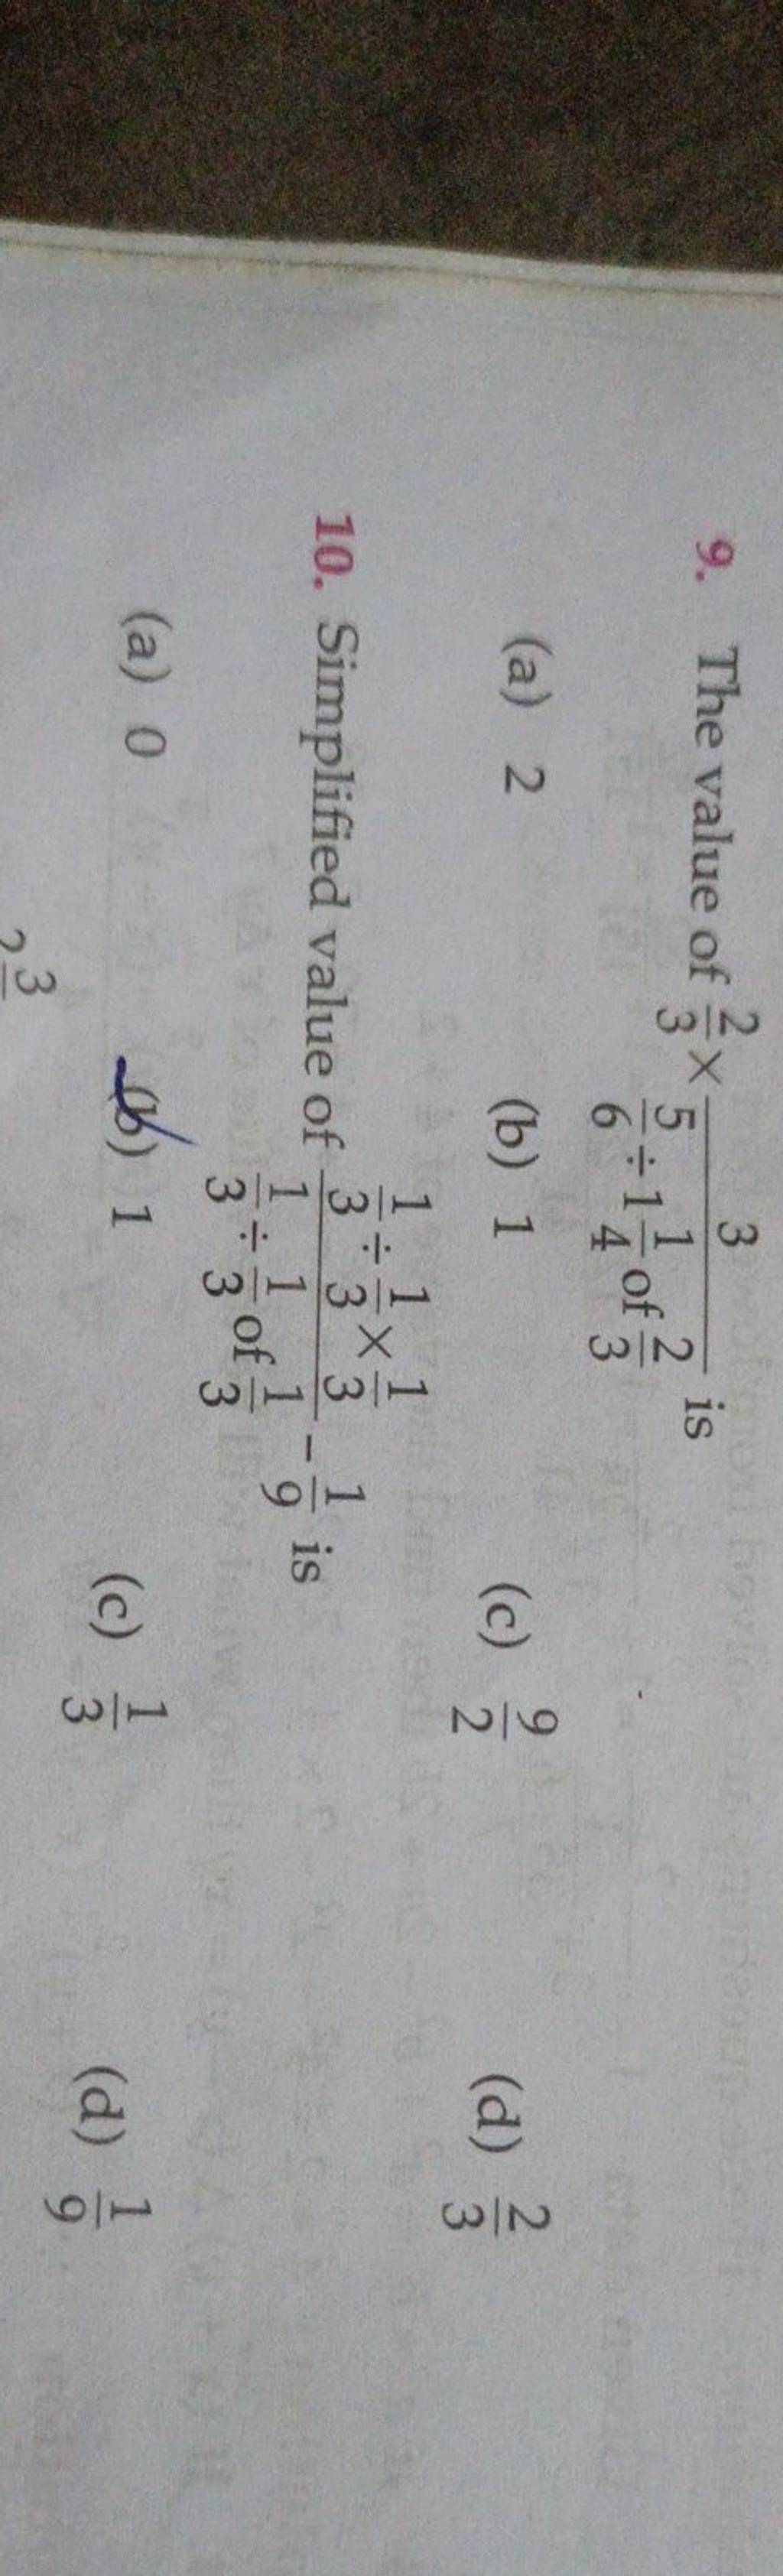 9. The value of 2/3 × 3/(5/6 ÷ 1 1/4 of 2/3) is
(a) 2 (b) 1 (c) 9/2 (d) 2/3
10. Simplified value of (1/3 ÷ 1/3 × 1/3)/(1/3 ÷ 1/3 of 1/3) − 1/9 is
(a) 0 (b) 1 (c) 1/3 (d) 1/9
3